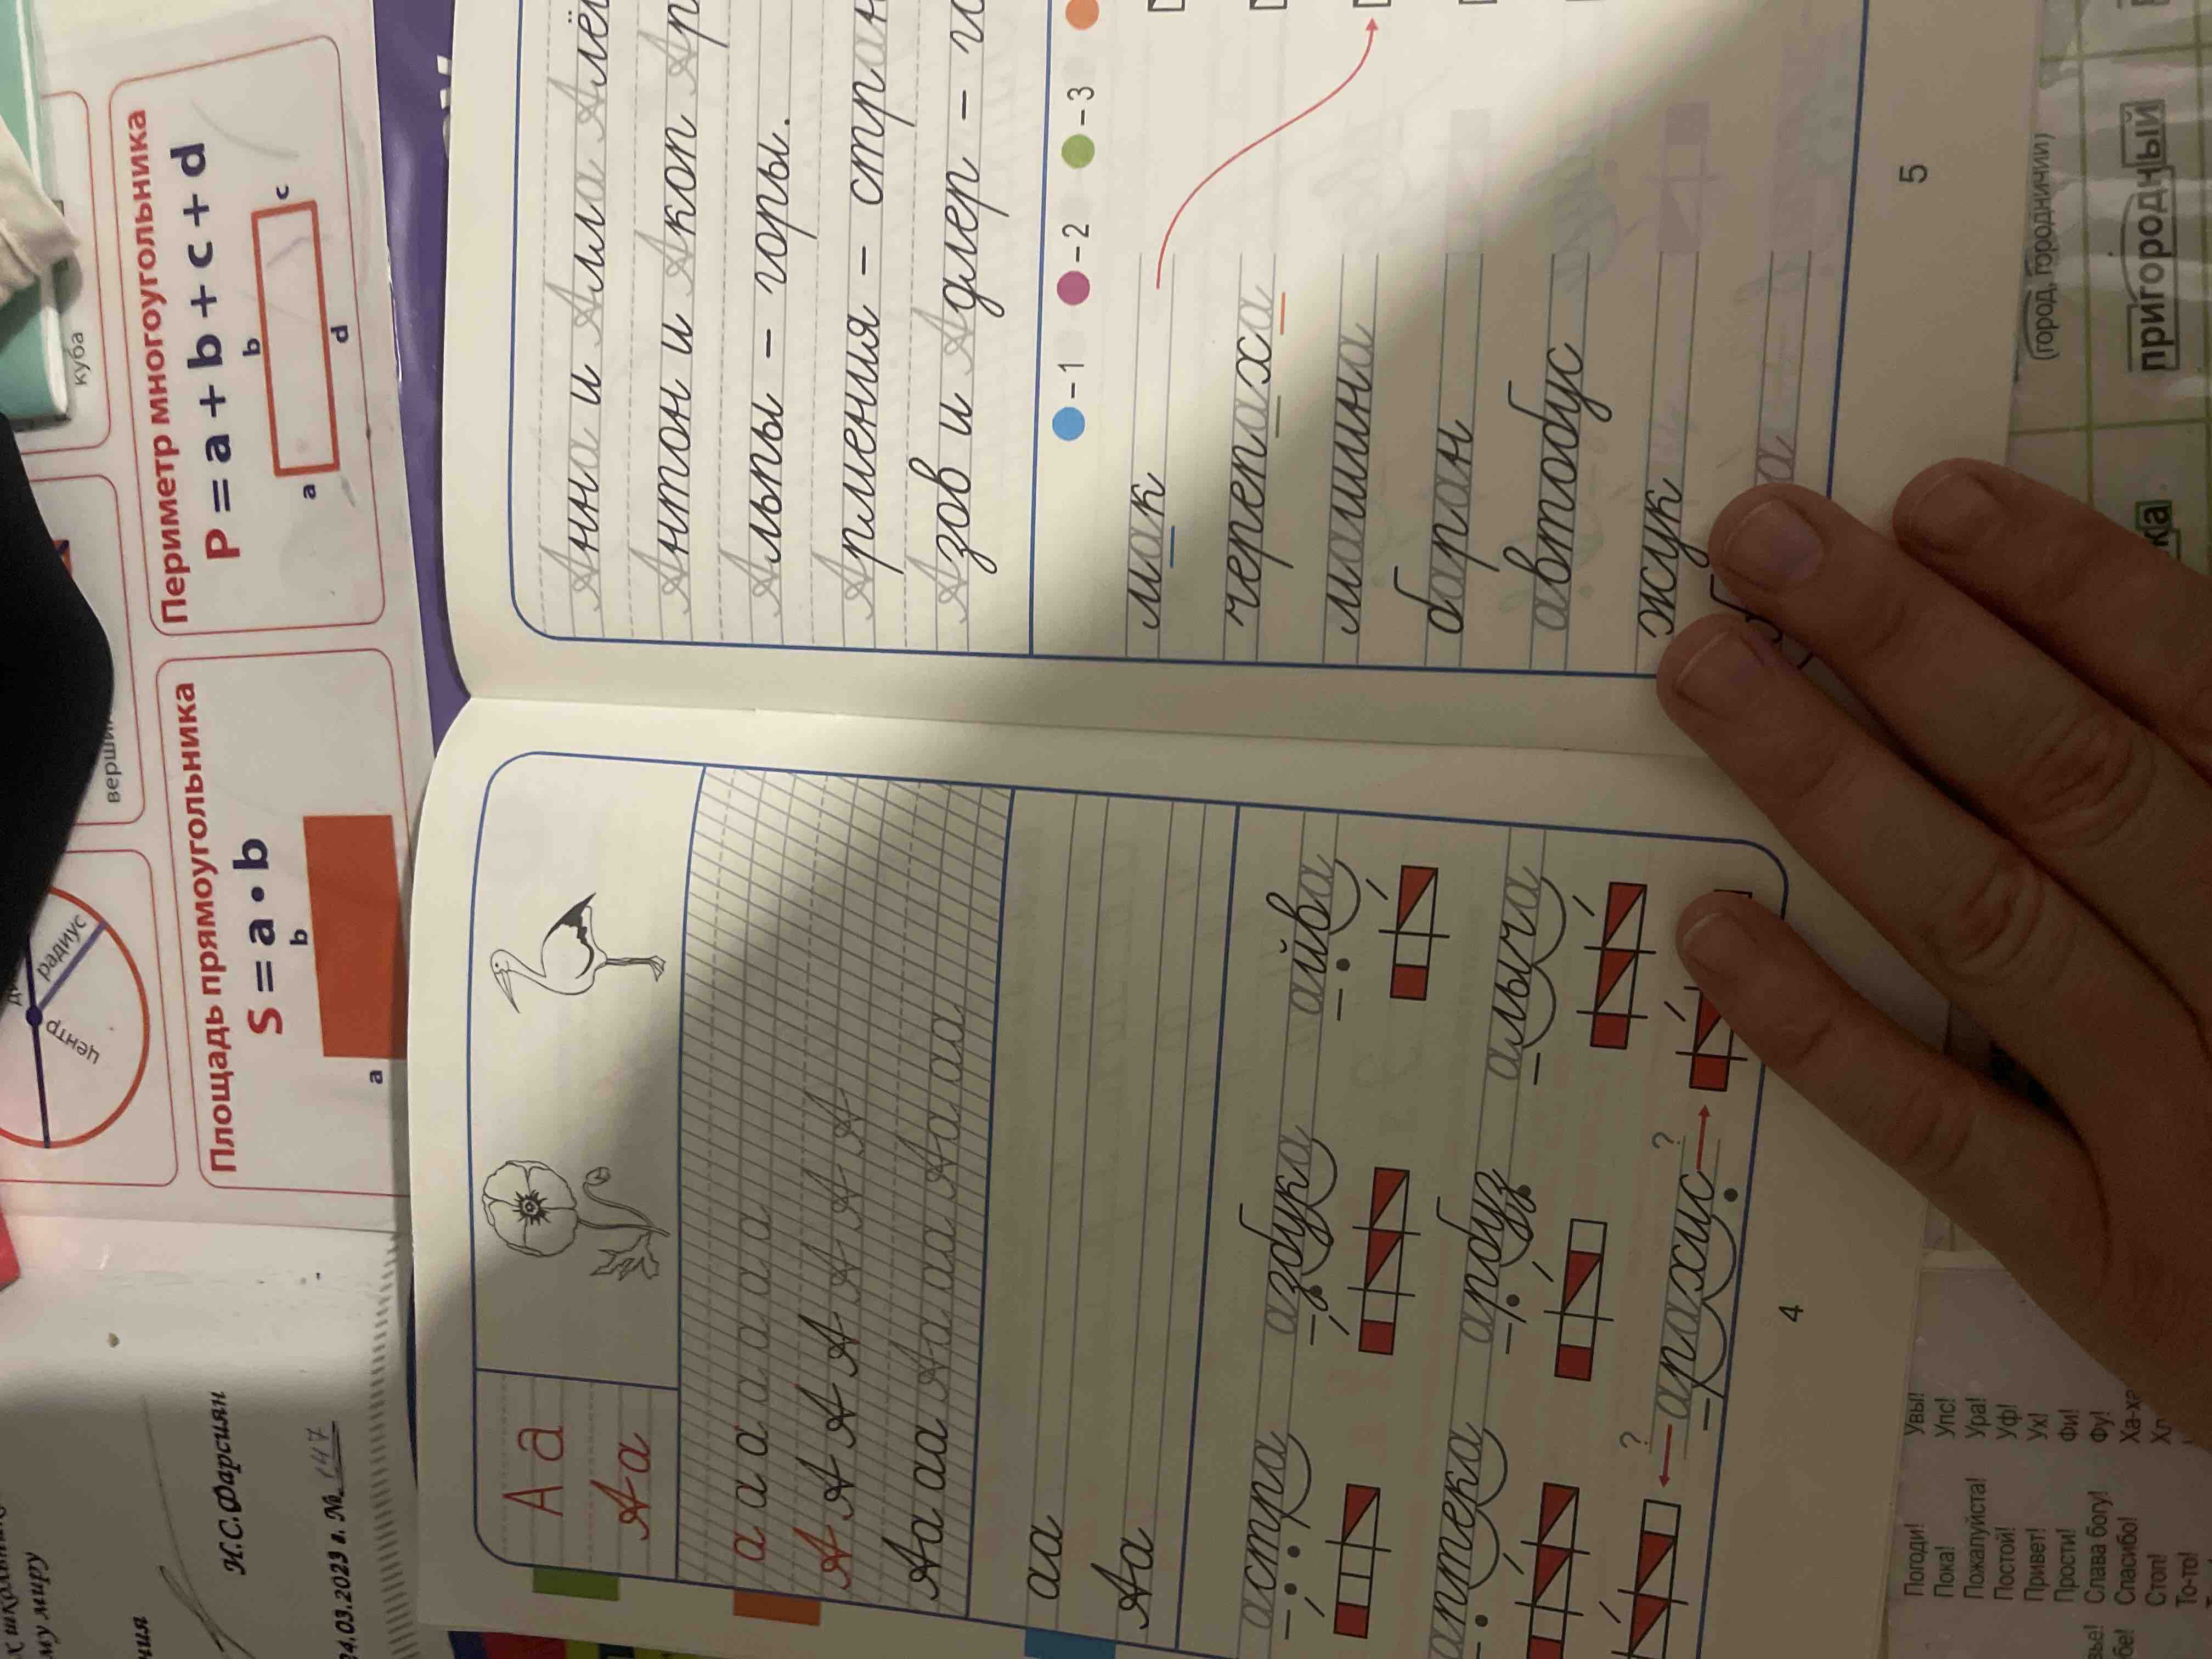 му миру
И.С.Фарсиян
24.03.2023 г. № 147
центр
радиус
куба
Площадь прямоугольника
S = a • b
b
a
Периметр многоугольника
P = a + b + c + d
b
a
c
d
А а
А а
а а а а а а а
А А А А А А А
Аа аа Аа аа Аа аа
аа
Аа
астра азбука айва
аптека арбуз алыча
? арахис ?
4
Анна и Алла
Антон и Акоп
Альпы – горы.
Армения –
Азов и Адлер –
– 1 – 2 – 3
мак
черепаха
машина
баран
автобус
жук
5
Погоди! Увы!
Пока! Упс!
Пожалуйста! Ура!
Постой! Уф!
Привет! Ух!
Прости! Фи!
Слава богу! Фу!
Спасибо!
Стоп!
То-то!
(город, городничий)
пригородный